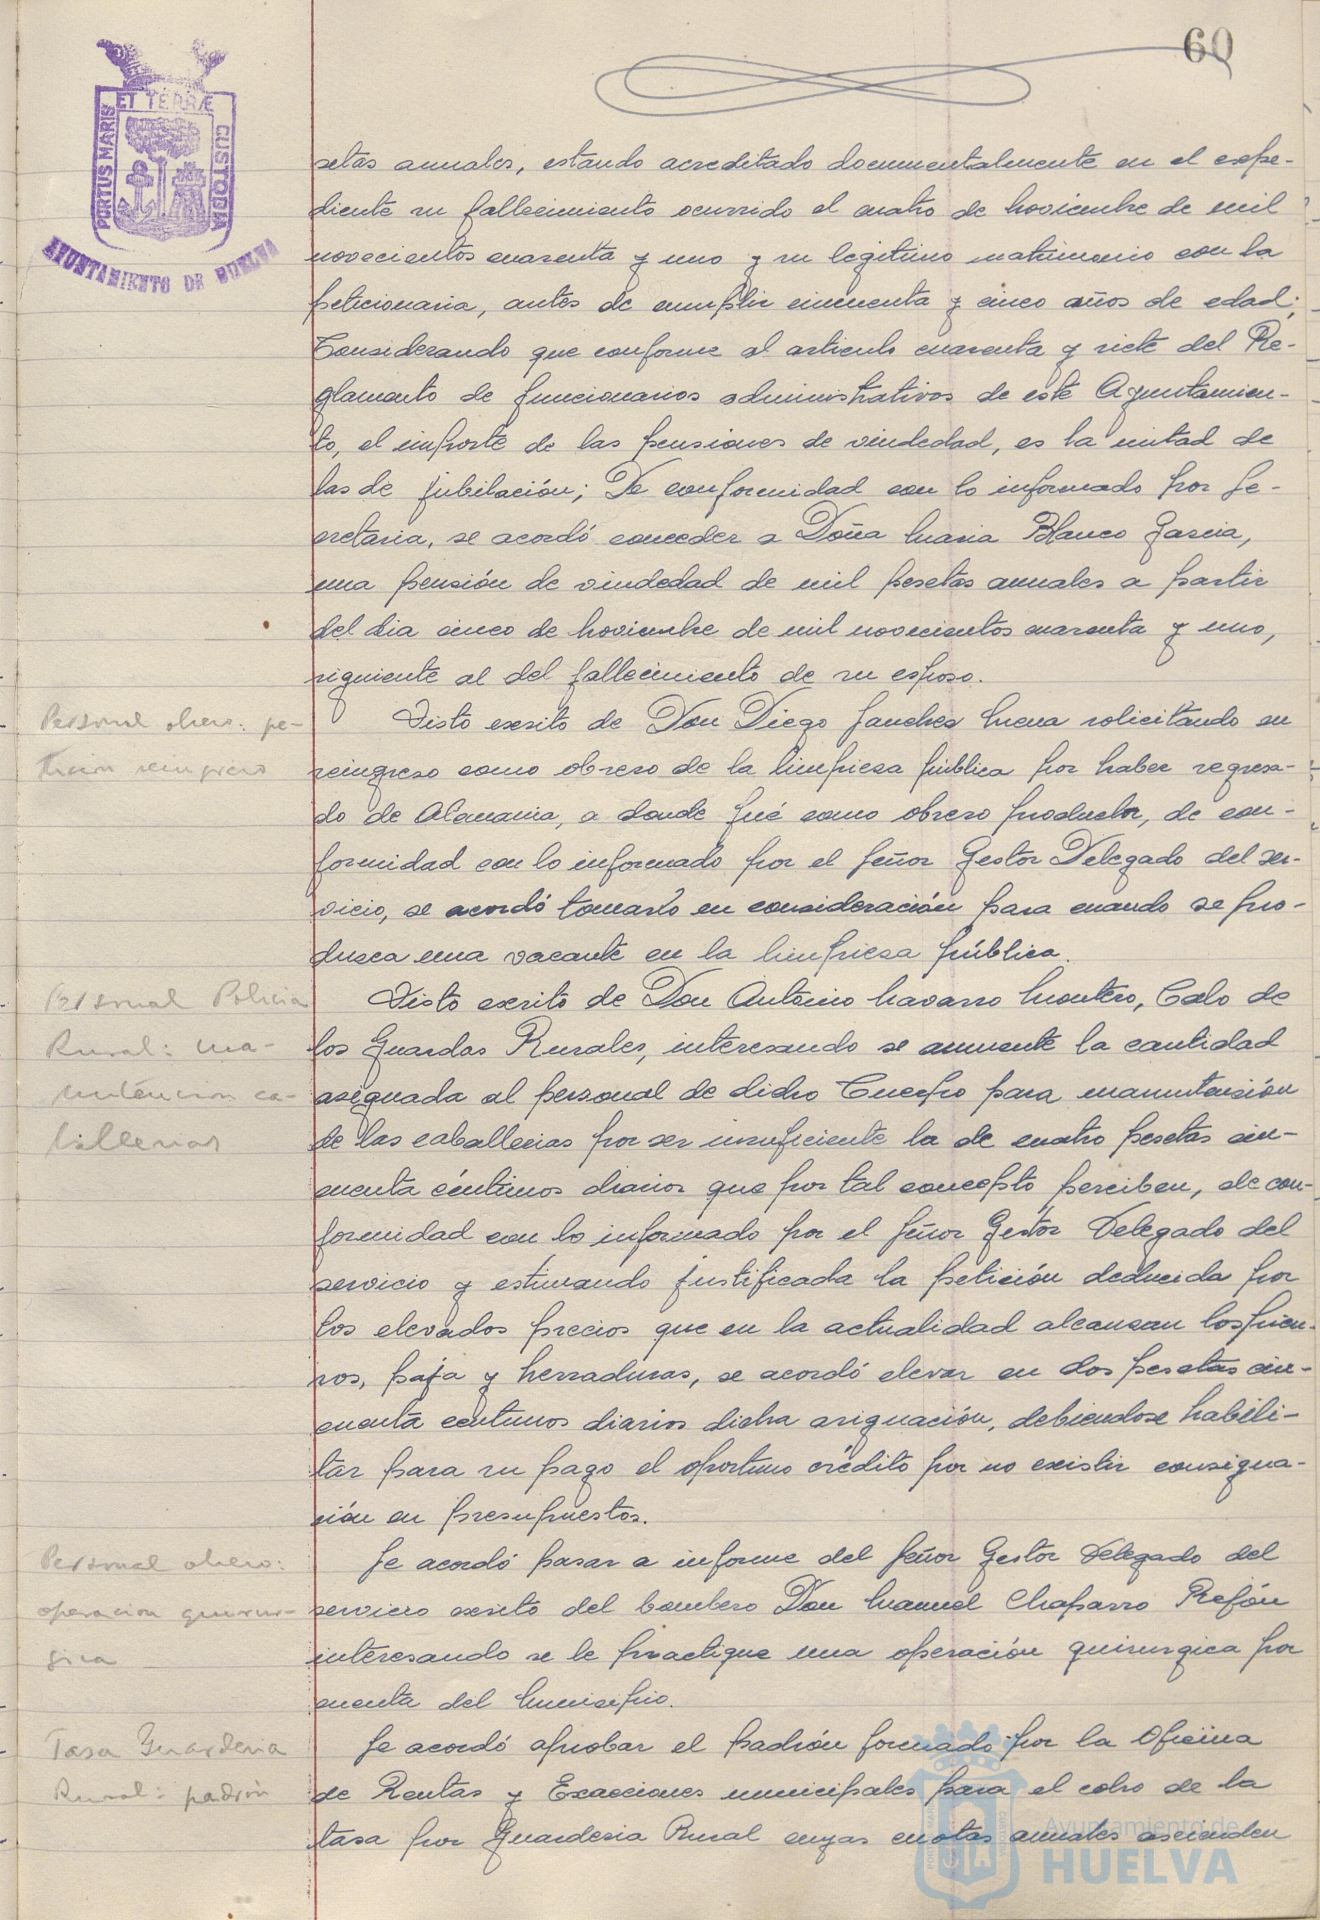 60
PORTUS MARIS ET TERRÆ CUSTODIA
AYUNTAMIENTO DE HUELVA
setas anuales, estando acreditado documentalmente en el expe-
diente su fallecimiento ocurrido el cuatro de Noviembre de mil
novecientos cuarenta y uno y su legitimo matrimonio con la
peticionaria, antes de cumplir cincuenta y cinco años de edad;
Considerando que conforme al articulo cuarenta y siete del Re-
glamento de funcionarios administrativos de este Ayuntamien-
to, el importe de las pensiones de viudedad, es la mitad de
las de jubilación; De conformidad con lo informado por Se-
cretaria, se acordó conceder a Doña Maria Blanco Garcia,
una pensión de viudedad de mil pesetas anuales a partir
del dia cinco de Noviembre de mil novecientos cuarenta y uno,
siguiente al del fallecimiento de su esposo.
Personal obrero: pe-
tición reingreso
Visto escrito de Don Diego Sanchez Mena solicitando su
reingreso como obrero de la limpieza pública por haber regresa-
do de Alemania, a donde fué como obrero productor, de con-
formidad con lo informado por el Señor Gestor Delegado del ser-
vicio, se acordó tomarlo en consideración para cuando se pro-
duzca una vacante en la limpieza pública.
Personal Policia
Rural: ma-
nutencion ca-
ballerias
Visto escrito de Don Antonio Navarro Montero, Cabo de
los Guardas Rurales, interesando se aumente la cantidad
asignada al personal de dicho Cuerpo para manutención
de las caballerias por ser insuficiente la de cuatro pesetas cin-
cuenta céntimos diarios que por tal concepto perciben, de con-
formidad con lo informado por el Señor Gestor Delegado del
servicio y estimando justificada la petición deducida por
los elevados precios que en la actualidad alcanzan los pien-
sos, paja y herraduras, se acordó elevar en dos pesetas cin-
cuenta centimos diarios dicha asignación, debiendose habili-
tar para su pago el oportuno crédito por no existir consigna-
ción en presupuestos.
Personal obrero:
operacion quirur-
gica
Se acordó pasar a informe del Señor Gestor Delegado del
servicio escrito del bombero Don Manuel Chaparro Refón
interesando se le practique una operación quirurgica por
cuenta del Municipio.
Tasa Guarderia
Rural: padrón
Se acordó aprobar el padrón formado por la Oficina
de Rentas y Exacciones municipales para el cobro de la
tasa por Guarderia Rural cuyas cuotas anuales ascienden
Ayuntamiento de
HUELVA